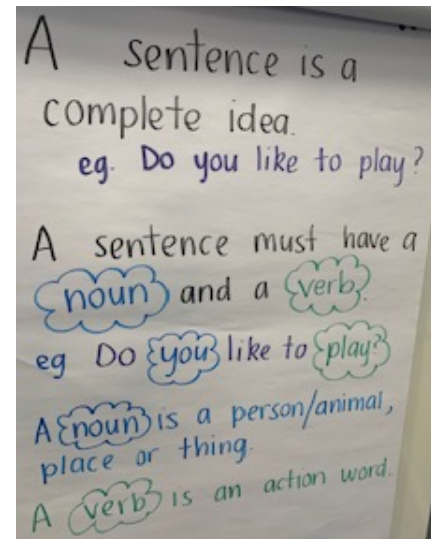 A sentence is a
complete idea.
eg. Do you like to play?
A sentence must have a
noun and a verb.
eg Do you like to play?
A noun is a person/animal,
place or thing.
A verb is an action word.